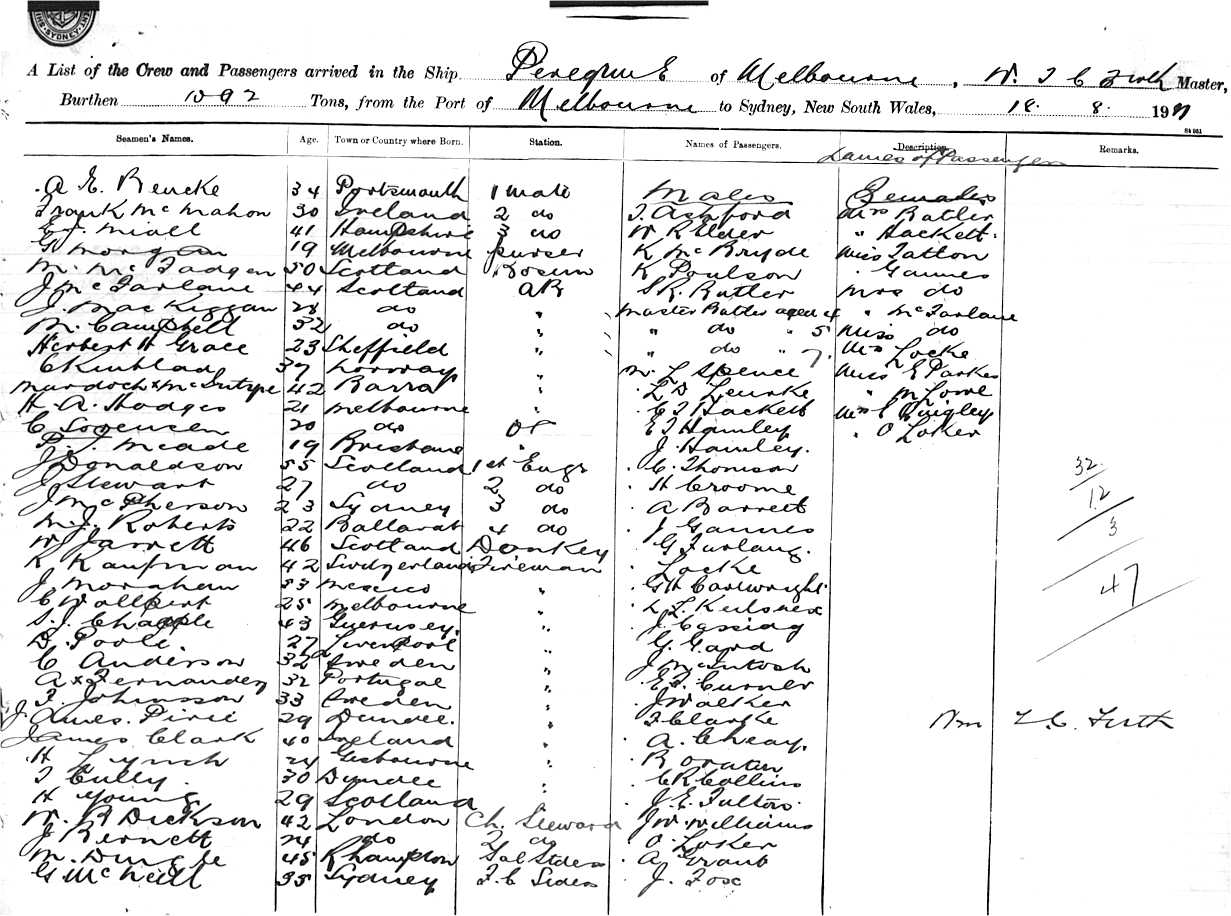 SYDNEY
A List of the Crew and Passengers arrived in the Ship Peregrine of Melbourne, W. T C Firth Master,
Burthen 1092 Tons, from the Port of Melbourne to Sydney, New South Wales, 18. 8. 19
St 651
Seamen's Names. Age. Town or Country where Born. Station. Names of Passengers. Description. Remarks.
Names of Passengers
A. E. Rencke 34 Portsmouth 1 mate Males Females
Frank McMahon 30 Ireland 2 do T. Ashford Mrs Butler
Miall 41 Hampshire 3 do W R Elder " Hackett.
G Morgan 19 Melbourne purser K McBryde Miss Tatton
M. McFadgen 50 Scotland Bosun K Poulson " Gannes
J McFarlane 44 Scotland AB S R. Butler Mrs do
J. MacKiggan 28 do " Master Butler aged 4 " McFarlane
M. Campbell 32 do " " do " 5 Miss do
Herbert H Grace 23 Sheffield " " do " 7. Mrs Locke
C Kinblad 37 Norway " W L Spence Miss E Parkes
Murdoch x McIntyre 42 Barra " L D " M Lowe
H A. Hodges 21 Melbourne " C T Hackett Mrs C Quigley
C Sorensen 20 do OS E J Hamley " O Loker
P. J. Meade 19 Brisbane " J. Hamley.
J Donaldson 55 Scotland 1st Engr C. Thomson 32
J Stewart 27 do 2 do H Croome
J McPherson 23 Sydney 3 do A Barrett 12
M. J. Roberts 22 Ballarat 4 do J Gannes 3
W Jarrett 46 Scotland Donkey G Furlong.
K Kaufman 42 Switzerland Fireman Locke
J Monahan 53 Mexico " G H Cartwright 47
C Wallpert 25 Melbourne " L L
S. J. Chapple 43 Guernsey. " J. Cassidy
D. Poole. 27 Liverpool " G. Gard
C Anderson 32 Sweden " J McIntosh
A x Fernandez 32 Portugal " E. F. Curner
F. Johnsson 33 Sweden " J Walker
James Pirie 29 Dundee. " T Clarke Wm T. C. Firth
James Clark 40 Ireland " A. Cheay.
H Lynch 24 Gisbourne " R
T Cully. 30 Dundee " C R Collins
H Young 29 Scotland " J. E. Fulton.
W. R Dickson 42 London Ch. Steward J W Williams
J Bennett 24 do 2 do O. Loker
M. Dingle 45 Rhampton Sal Stdess A Grant
G McNeill 35 Sydney F. C Stdess J. Fox